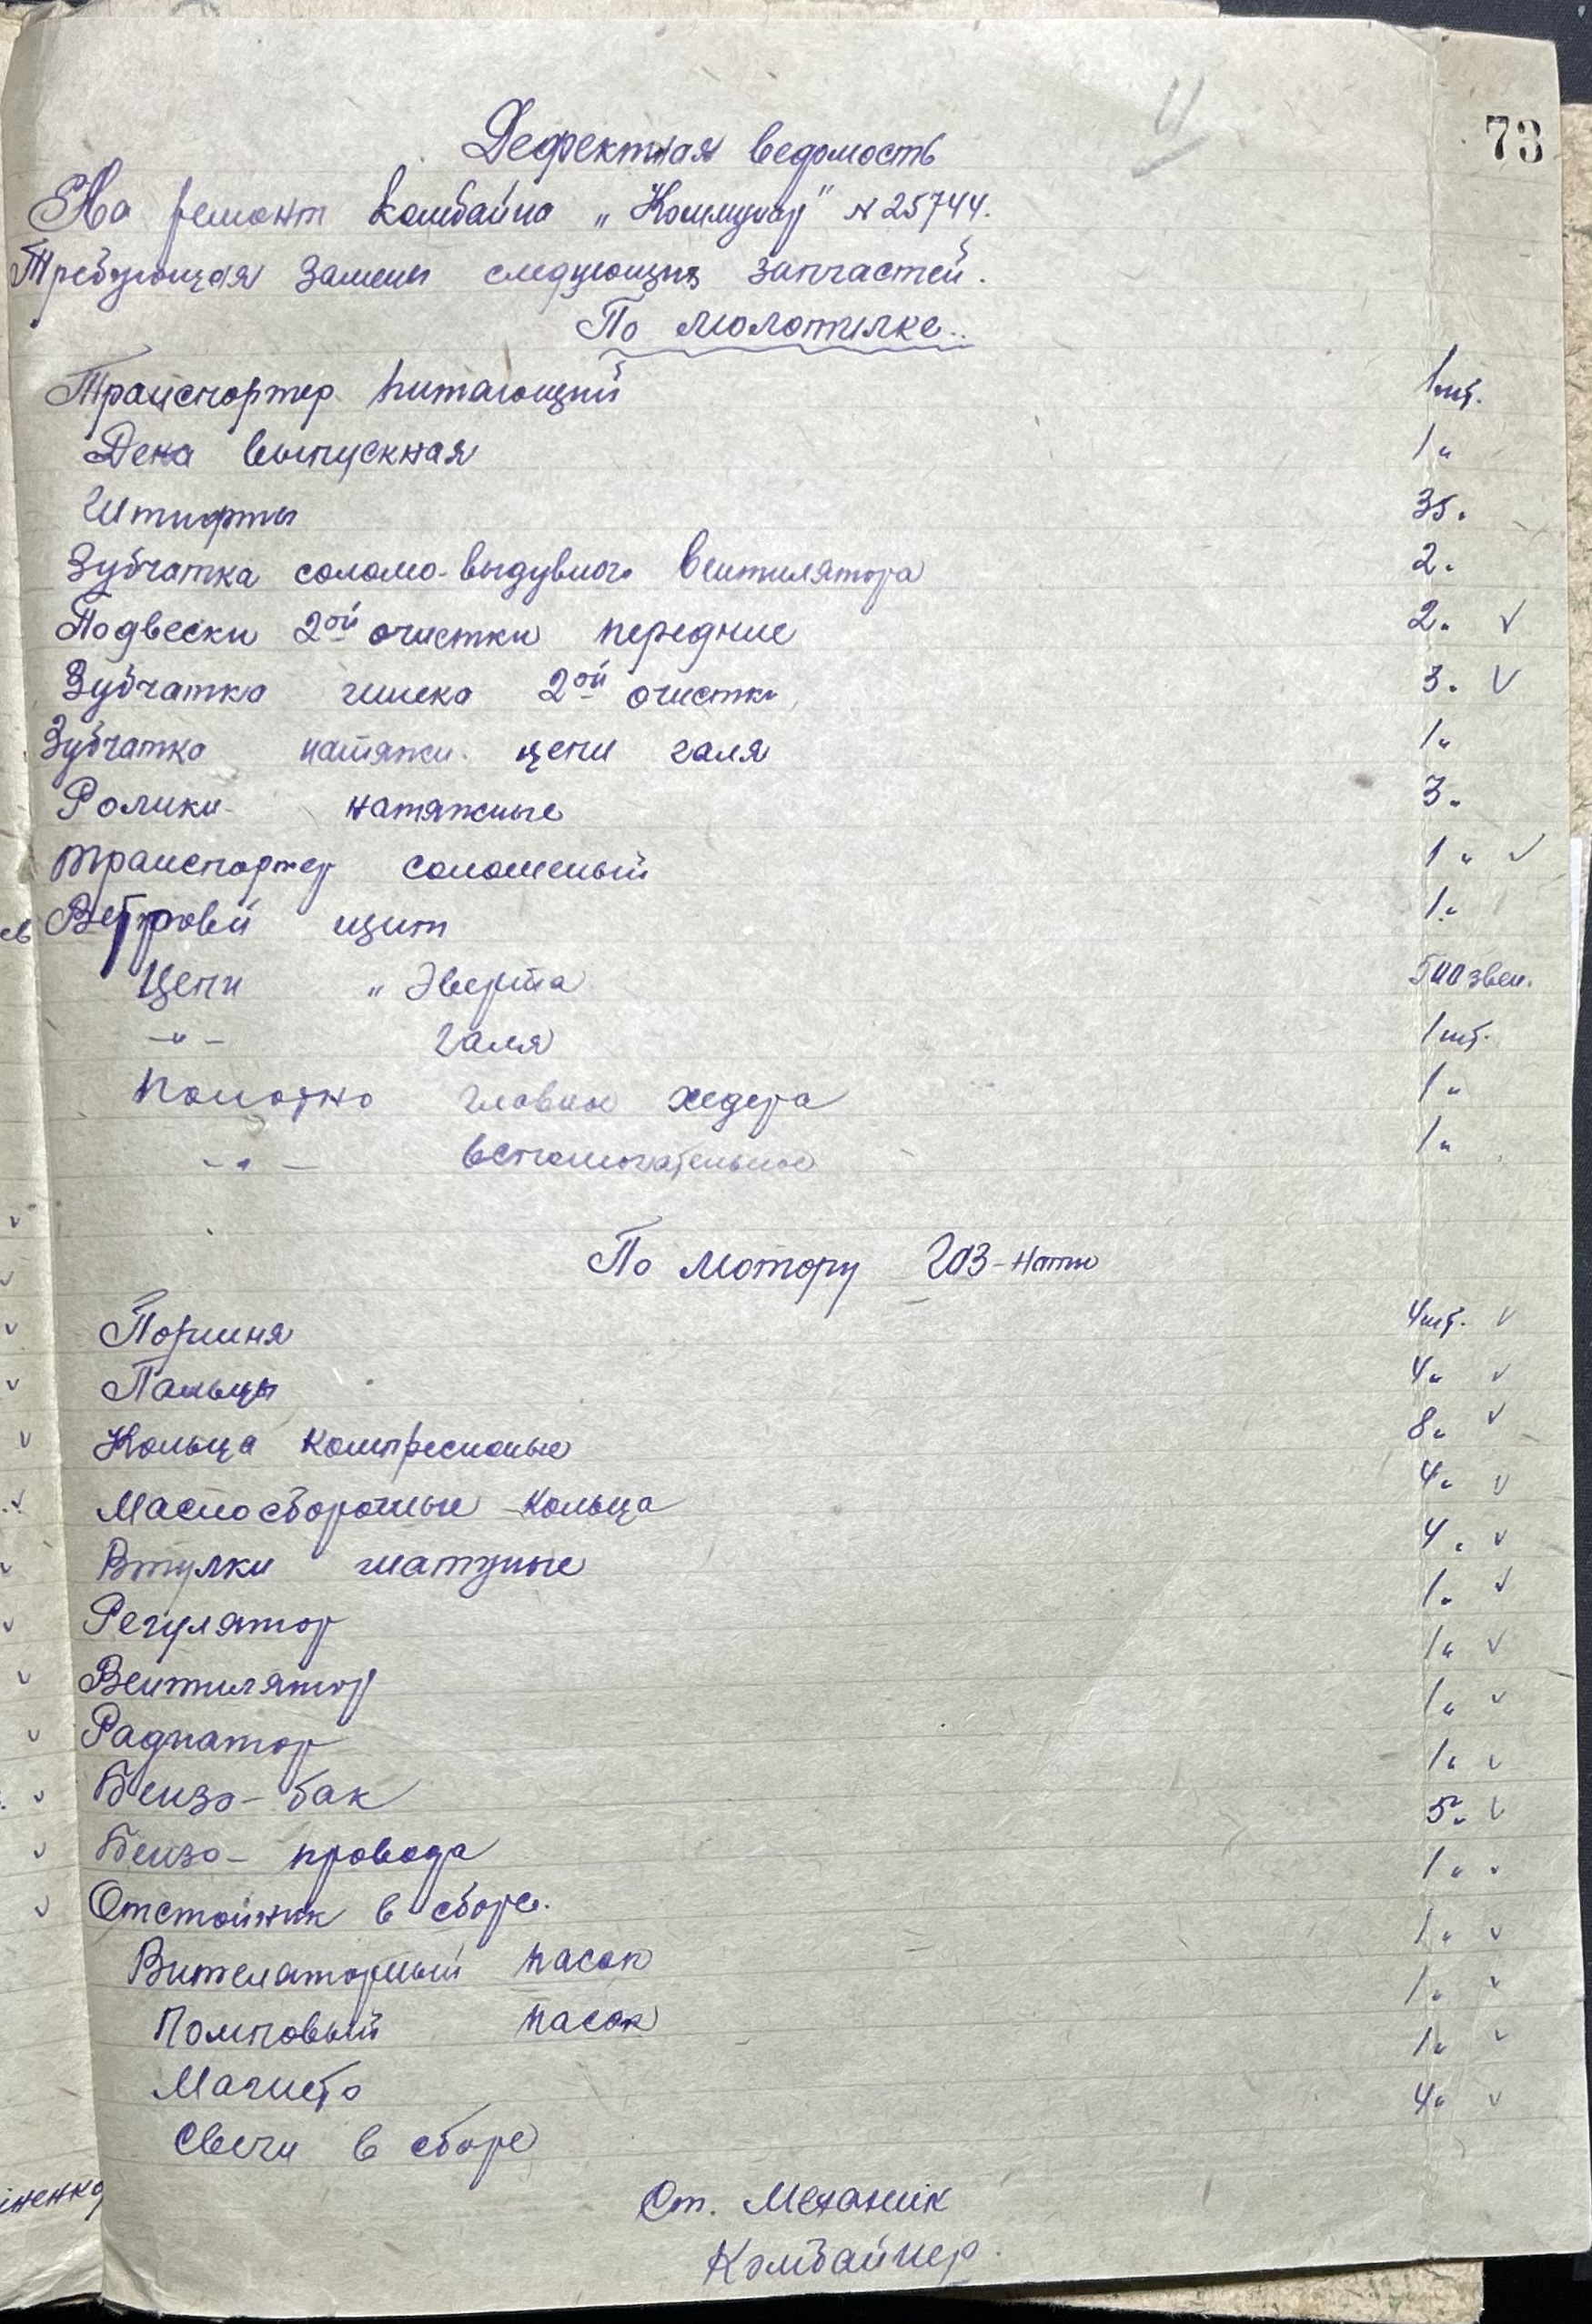 73
Дефектная ведомость
На ремонт комбайна „Коммунар" № 25744.
Требующая замены следующих запчастей.
По молотилке..
Транспортер питающий 1 шт.
Дека выпускная 1 "
Штифты 35 "
Зубчатка соломо-выдувного вентилятора 2 "
Подвески 2ой очистки передние 2 " ✓
Зубчатка шнека 2ой очистки 3 " ✓
Зубчатка натяжн. цепи галя 1 "
Ролики натяжные 3 "
Транспортер соломеный 1 " ✓
Ветровей щит 1 "
Цепи „ Эверта 500 звен.
-"- галя 1 шт.
Полотно главное хедера 1 "
-"- вспомогательное 1 "
По мотору ГАЗ-
Поршня 4 шт. ✓
Пальцы 4 " ✓
Кольца компресионые 8 " ✓
Маслосборочные кольца 4 " ✓
Втулки шатуные 4 " ✓
Регулятор 1 " ✓
Вентилятор 1 " ✓
Радиатор 1 " ✓
Бензо-бак 1 " ✓
Бензо-провода 5 " ✓
Отстойник в сборе. 1 " ✓
Вителаторный пасок 1 " ✓
Помповый пасок 1 " ✓
Магнето 1 " ✓
Свечи в сборе 4 " ✓
Ст. Механик
Комбайнер.